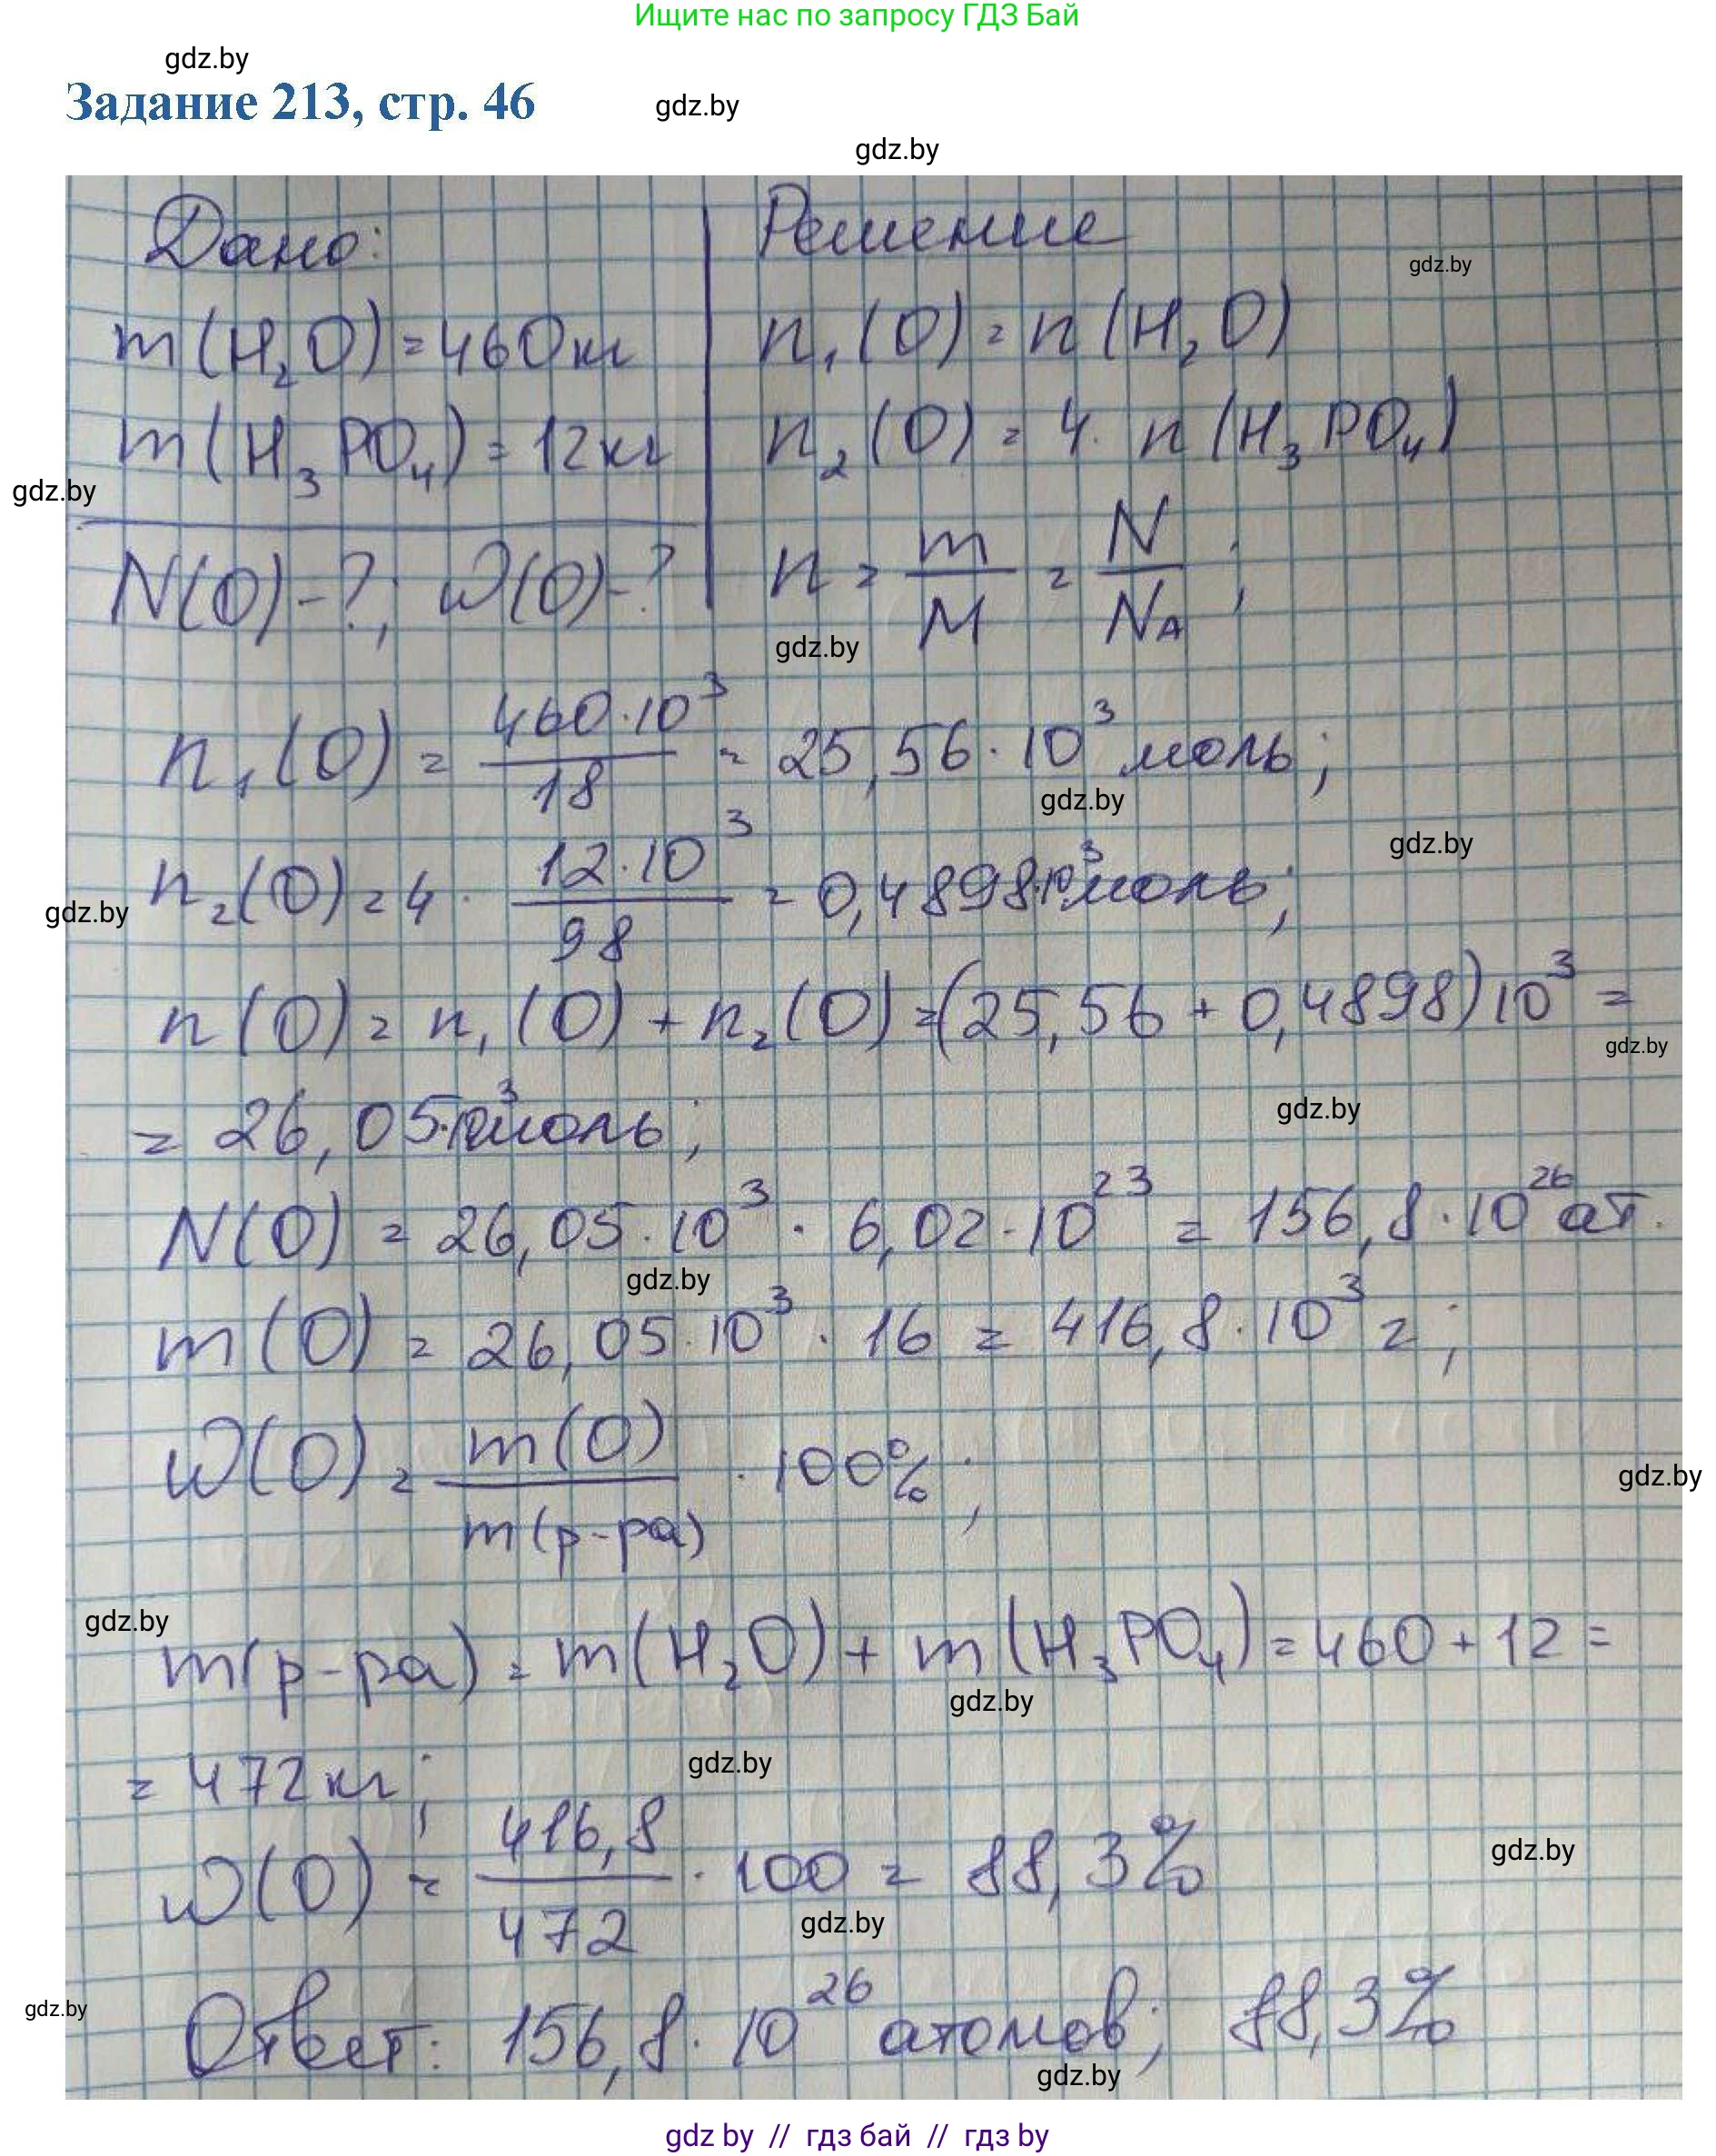 Ищите нас по запросу ГДЗ Бай
gdz.by
Задание 213, стр. 46
gdz.by
gdz.by
Дано:
Решение
gdz.by
m(H₂O) = 460 кг
n₁(O) = n(H₂O)
m(H₃PO₄) = 12 кг
n₂(O) = 4 · n(H₃PO₄)
gdz.by
N(O) - ?; W(O) - ?
n = m/M = N/Nᴀ;
gdz.by
n₁(O) = 460·10³/18 = 25,56·10³ моль;
gdz.by
gdz.by
n₂(O) = 4 · 12·10³/98 = 0,4898·10³ моль;
gdz.by
n(O) = n₁(O) + n₂(O) = (25,56 + 0,4898)10³ =
gdz.by
= 26,05·10³ моль;
gdz.by
N(O) = 26,05·10³ · 6,02·10²³ = 156,8·10²⁶ ат.
gdz.by
m(O) = 26,05·10³ · 16 = 416,8·10³ г;
W(O) = m(O)/m(р-ра) · 100%;
gdz.by
gdz.by
m(р-ра) = m(H₂O) + m(H₃PO₄) = 460 + 12 =
gdz.by
= 472 кг;
gdz.by
W(O) = 416,8/472 · 100 = 88,3%
gdz.by
gdz.by
Ответ: 156,8·10²⁶ атомов; 88,3%
gdz.by
gdz.by
gdz by // гдз бай // гдз by